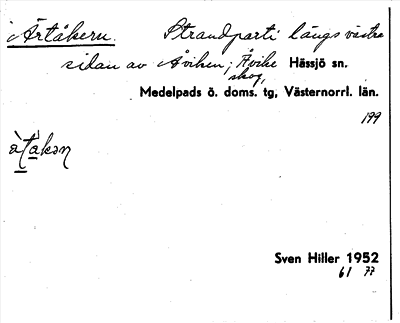 Ärtåkern. Strandparti längs västra
sidan av Åviken; Åvike
skog, Hässjö sn.
Medelpads ö. doms. tg, Västernorrl. län.
199
Sven Hiller 1952
61 77